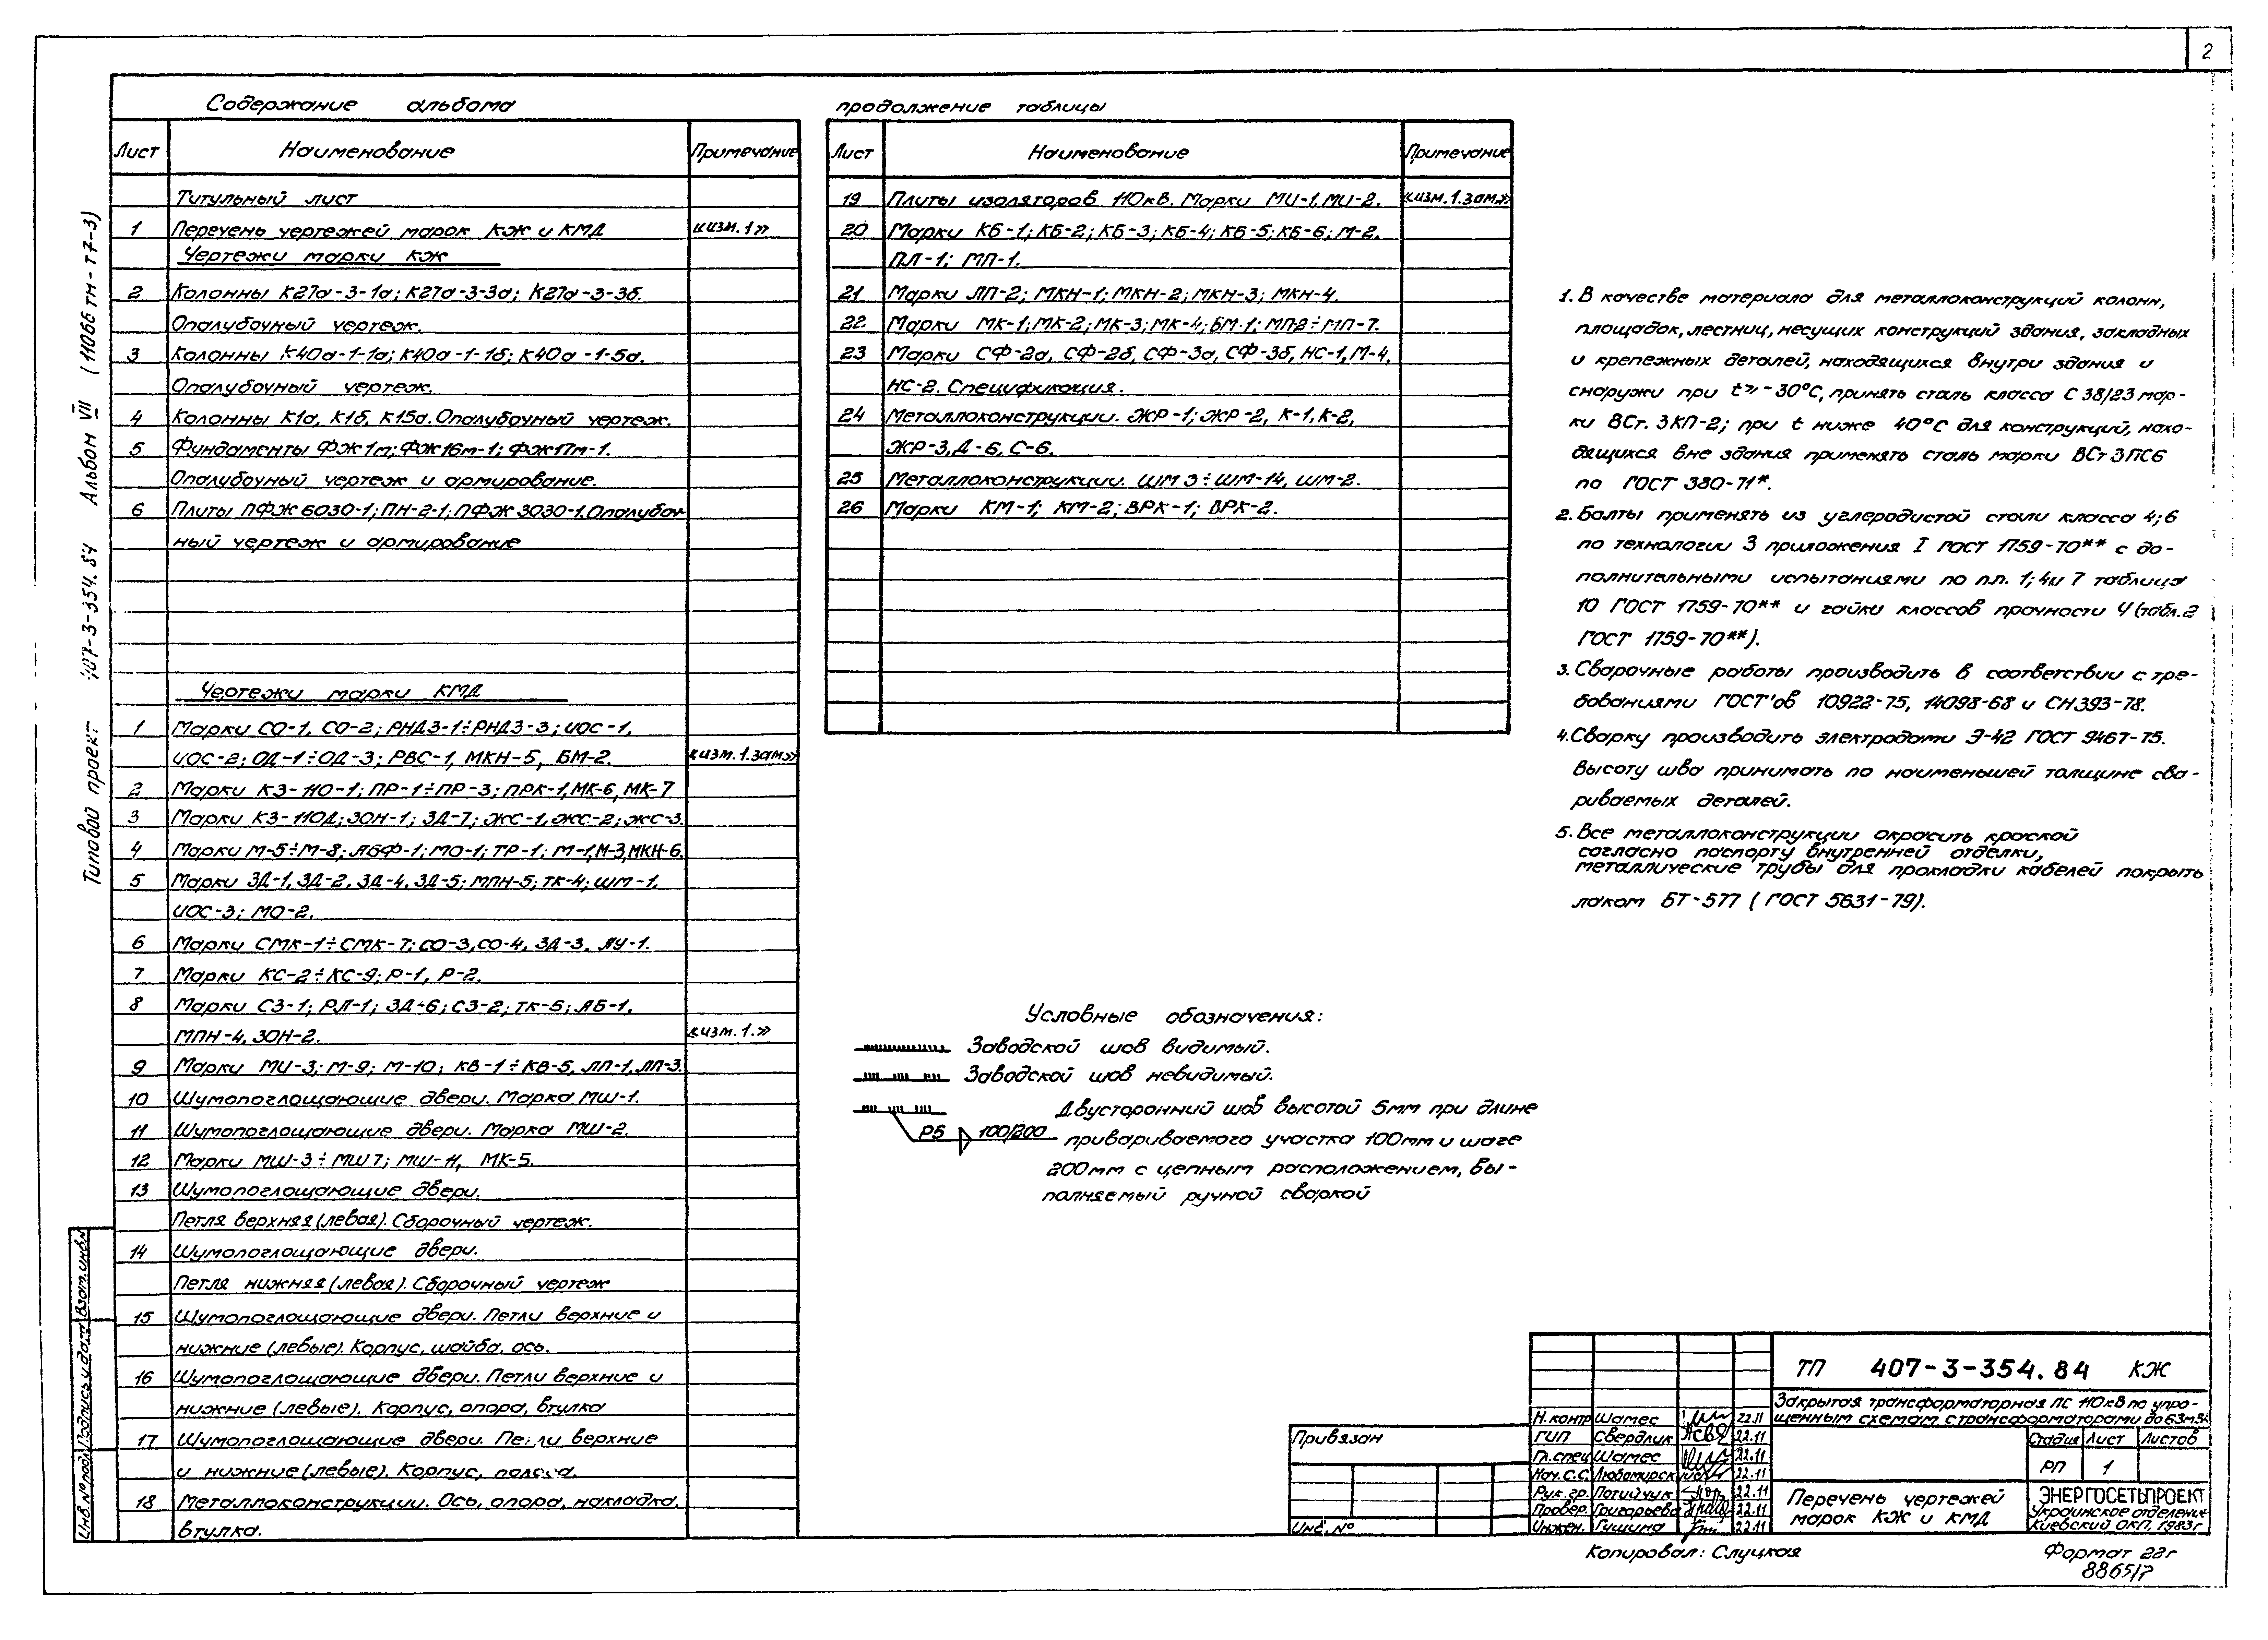 2
Содержание альбома
Лист Наименование Примечание
Титульный лист
1 Перечень чертежей марок КЖ и КМД «изм.1»
Чертежи марки КЖ
2 Колонны К27а-3-1а; К27а-3-3а; К27а-3-3б.
Опалубочный чертеж.
3 Колонны К40а-1-1а; К40а-1-1б; К40а-1-5а.
Опалубочный чертеж.
4 Колонны К1а, К1б, К15а. Опалубочный чертеж.
5 Фундаменты ФЖ1м; ФЖ16м-1; ФЖ17м-1.
Опалубочный чертеж и армирование.
6 Плиты ПФЖ 6030-1; ПН-2-1; ПФЖ 3030-1. Опалубоч
ный чертеж и армирование
Чертежи марки КМД
1 Марки СО-1, СО-2; РНДЗ-1÷РНДЗ-3; ИОС-1,
ИОС-2; ОД-1÷ОД-3; РВС-1, МКН-5, БМ-2. «изм.1.зам»
2 Марки КЗ-110-1; ПР-1÷ПР-3; ПРК-1, МК-6, МК-7
3 Марки КЗ-110Д; ЗОН-1; ЗД-7; ЖС-1, ЖС-2; ЖС-3.
4 Марки М-5÷М-8; ЯБФ-1; МО-1; ТР-1; М-1, М-3, МКН-6.
5 Марки ЗД-1, ЗД-2, ЗД-4, ЗД-5; МПН-5; ТК-4; ШМ-1,
ИОС-3; МО-2.
6 Марки СМК-1÷СМК-7; СО-3, СО-4, ЗД-3, ЯУ-1.
7 Марки КС-2÷КС-9; Р-1, Р-2.
8 Марки СЗ-1; РЛ-1; ЗД-6; СЗ-2; ТК-5; ЯБ-1,
МПН-4, ЗОН-2. «изм.1.»
9 Марки МИ-3; М-9; М-10; КВ-1÷КВ-5, ЛП-1, ЛП-3.
10 Шумопоглощающие двери. Марка МШ-1.
11 Шумопоглощающие двери. Марка МШ-2.
12 Марки МШ-3÷МШ7; МШ-11, МК-5.
13 Шумопоглощающие двери.
Петля верхняя (левая). Сборочный чертеж.
14 Шумопоглощающие двери.
Петля нижняя (левая). Сборочный чертеж
15 Шумопоглощающие двери. Петли верхние и
нижние (левые). Корпус, шайба, ось.
16 Шумопоглощающие двери. Петли верхние и
нижние (левые). Корпус, опора, втулка
17 Шумопоглощающие двери. Петли верхние
и нижние (левые). Корпус,
18 Металлоконструкции. Ось, опора, накладка,
втулка.
продолжение таблицы
Лист Наименование Примечание
19 Плиты изоляторов 110кв. Марки МИ-1, МИ-2. «изм.1.зам»
20 Марки КБ-1; КБ-2; КБ-3; КБ-4; КБ-5; КБ-6; М-2,
ПЛ-1; МП-1.
21 Марки ЛП-2; МКН-1; МКН-2; МКН-3; МКН-4.
22 Марки МК-1; МК-2; МК-3; МК-4; БМ-1; МП2÷МП-7.
23 Марки СФ-2а, СФ-2б, СФ-3а, СФ-3б, НС-1, М-4,
НС-2. Спецификация.
24 Металлоконструкции. ЖР-1; ЖР-2, К-1, К-2,
ЖР-3, Д-6, С-6.
25 Металлоконструкции. ШМ 3÷ШМ-14, ШМ-2.
26 Марки КМ-1; КМ-2; ВРК-1; ВРК-2.
1. В качестве материала для металлоконструкций колонн,
площадок, лестниц, несущих конструкций здания, закладных
и крепежных деталей, находящихся внутри здания и
снаружи при t≥-30°С, принять сталь класса С 38/23 мар-
ки ВСт. 3КП-2; при t ниже 40°С для конструкций, нахо-
дящихся вне здания применять сталь марки ВСт 3ПС6
по ГОСТ 380-71*.
2. Болты применять из углеродистой стали класса 4;6
по технологии 3 приложения I ГОСТ 1759-70** с до-
полнительными испытаниями по п.п. 1; 4 и 7 таблица
10 ГОСТ 1759-70** и гайки классов прочности 4 (табл. 2
ГОСТ 1759-70**).
3. Сварочные работы производить в соответствии с тре-
бованиями ГОСТ'ов 10922-75, 14098-68 и СН393-78.
4. Сварку производить электродами Э-42 ГОСТ 9467-75.
Высоту шва принимать по наименьшей толщине сва-
риваемых деталей.
5. Все металлоконструкции окрасить краской
согласно паспорту внутренней отделки,
металлические трубы для прокладки кабелей покрыть
лаком БТ-577 (ГОСТ 5631-79).
Условные обозначения:
Заводской шов видимый.
Заводской шов невидимый.
Р5 100/200
Двусторонний шов высотой 5мм при длине
привариваемого участка 100мм и шаге
200мм с цепным расположением, вы-
полняемый ручной сваркой
Типовой проект 407-3-354.84 Альбом VII (11066 тм-т7-3)
Взам.инв.№
Подпись и дата
Инв.№подл
Привязан
Инв.№
Н.контр Шамес 22.11
ГИП Свердлик 22.11
Гл.спец Шамес 22.11
Нач.С.С. Любомирский 22.11
Рук.гр. Потийчук 22.11
Провер. Григорьева 22.11
Инжен. Гущина 22.11
ТП 407-3-354.84 КЖ
Закрытая трансформаторная ПС 110кВ по упро-
щенным схемам с трансформаторами до 63мва
Стадия Лист Листов
РП 1
Перечень чертежей
марок КЖ и КМД
ЭНЕРГОСЕТЬПРОЕКТ
Украинское отделение
Киевский ОКП, 1983г
Копировал: Слуцкая
Формат 22г
8865/7